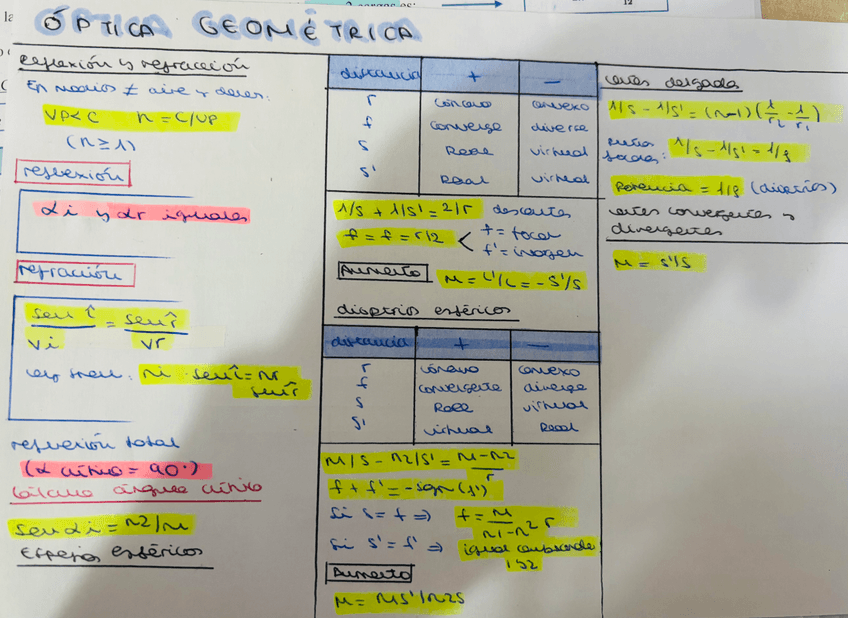 ÓPTICA GEOMÉTRICA
reflexión y refracción
En medios ≠ aire y
VP<C n = C/VP
(n≥1)
reflexión
αi y αr iguales
refracción
sen î = sen r̂
Vi Vr
ley snell: ni · sen î = nr
sen r̂
reflexión total
(α crítico = 90°)
Cálculo ángulo crítico
sen αi = n2/n1
Espejos esféricos
distancia + -
r cóncavo convexo
f converge diverge
s Real virtual
s' Real virtual
1/s + 1/s' = 2/r descartes
f = f = r/2 < f = focal
f' = imagen
Aumento M = L'/L = -s'/s
dioptrios esféricos
distancia + -
r cóncavo convexo
f convergente diverge
s Real virtual
s' virtual Real
n1/s - n2/s' = n1-n2
r
f + f' =
Si s = f ⇒ f = n1
n1-n2 r
Si s' = f' ⇒ igual
1 y 2
Aumento
M = n1s'/n2s
lentes delgadas
1/s - 1/s' = (n-1)(1/r2 - 1/r1)
1/s - 1/s' = 1/f
Potencia = 1/f (dioptrías)
lentes convergentes y
divergentes
M = s'/s